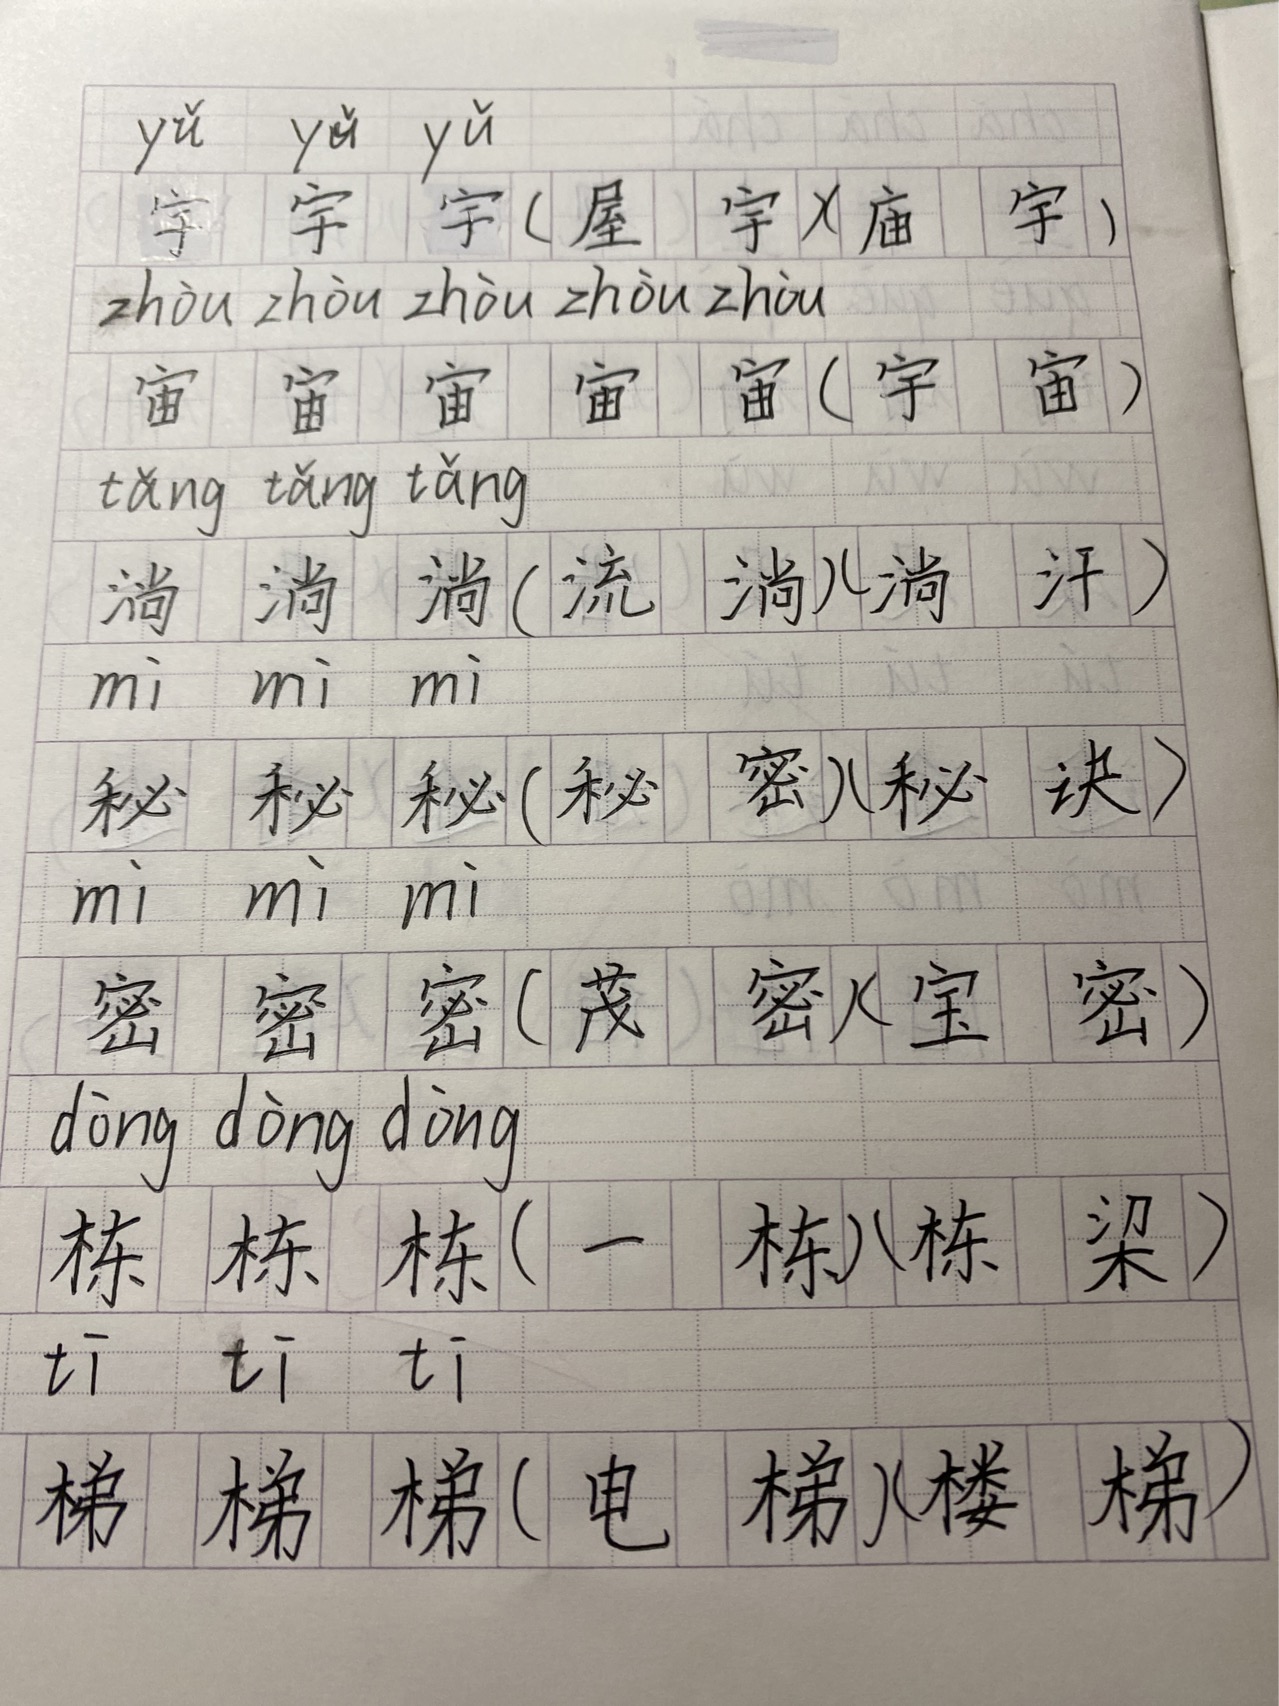 yǔ yǔ yǔ
宇 宇 宇(屋 宇)(庙 宇)
zhòu zhòu zhòu zhòu zhòu
宙 宙 宙 宙 宙(宇 宙)
tǎng tǎng tǎng
淌 淌 淌(流 淌)(淌 汗)
mì mì mì
秘 秘 秘(秘 密)(秘 诀)
mì mì mì
密 密 密(茂 密)(宝 密)
dòng dòng dòng
栋 栋 栋(一 栋)(栋 梁)
tī tī tī
梯 梯 梯(电 梯)(楼 梯)